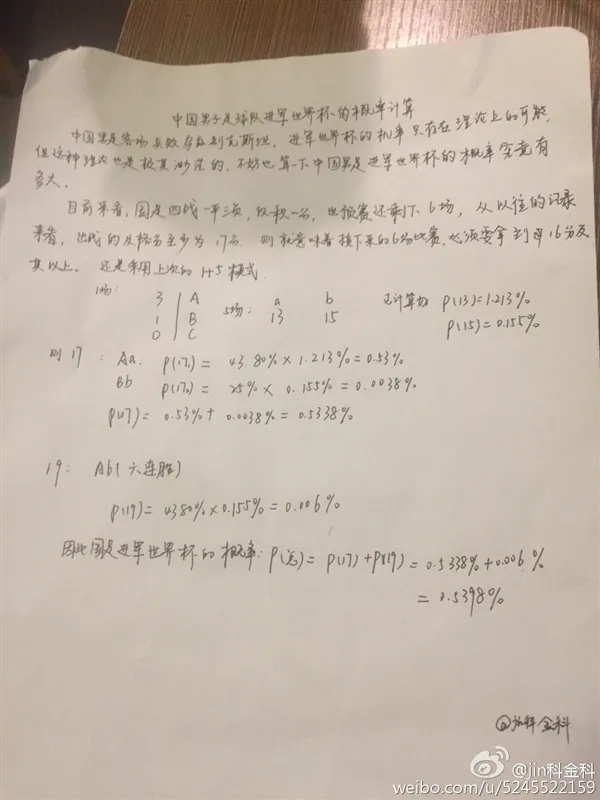 中国男子足球队进军世界杯的概率计算
中国男足客场兵败乌兹别克斯坦，进军世界杯的机率只存在理论上的可能，
但这种理论也是极其渺茫的，不妨也算一下中国男足进军世界杯的概率究竟有
多大。
目前来看，国足四战一平三负，仅积一分，也预赛还剩下6场，从以往的记录
来看，出线的及格分至少为17分，则就意味着接下来的6场比赛，必须要拿到16分及
其以上。还是采用上次的1+5模式
1场： 3 A 5场： a b 已计算好 P(13)=1.213%
1 B 13 15 P(15)=0.155%
0 C
则17： Aa. P(17₁)= 43.80%×1.213%=0.53%
Bb P(17₂)= 25%× 0.155%=0.0038%
P(17)= 0.53%+ 0.0038%=0.5338%
19： Ab(六连胜)
P(19)= 43.80%×0.155%=0.006%
因此国足进军世界杯的概率：P(总)= P(17)+P(19)=0.5338%+0.006%
=0.5398%
@jin科金科
@jin科金科
weibo.com/u/5245522159